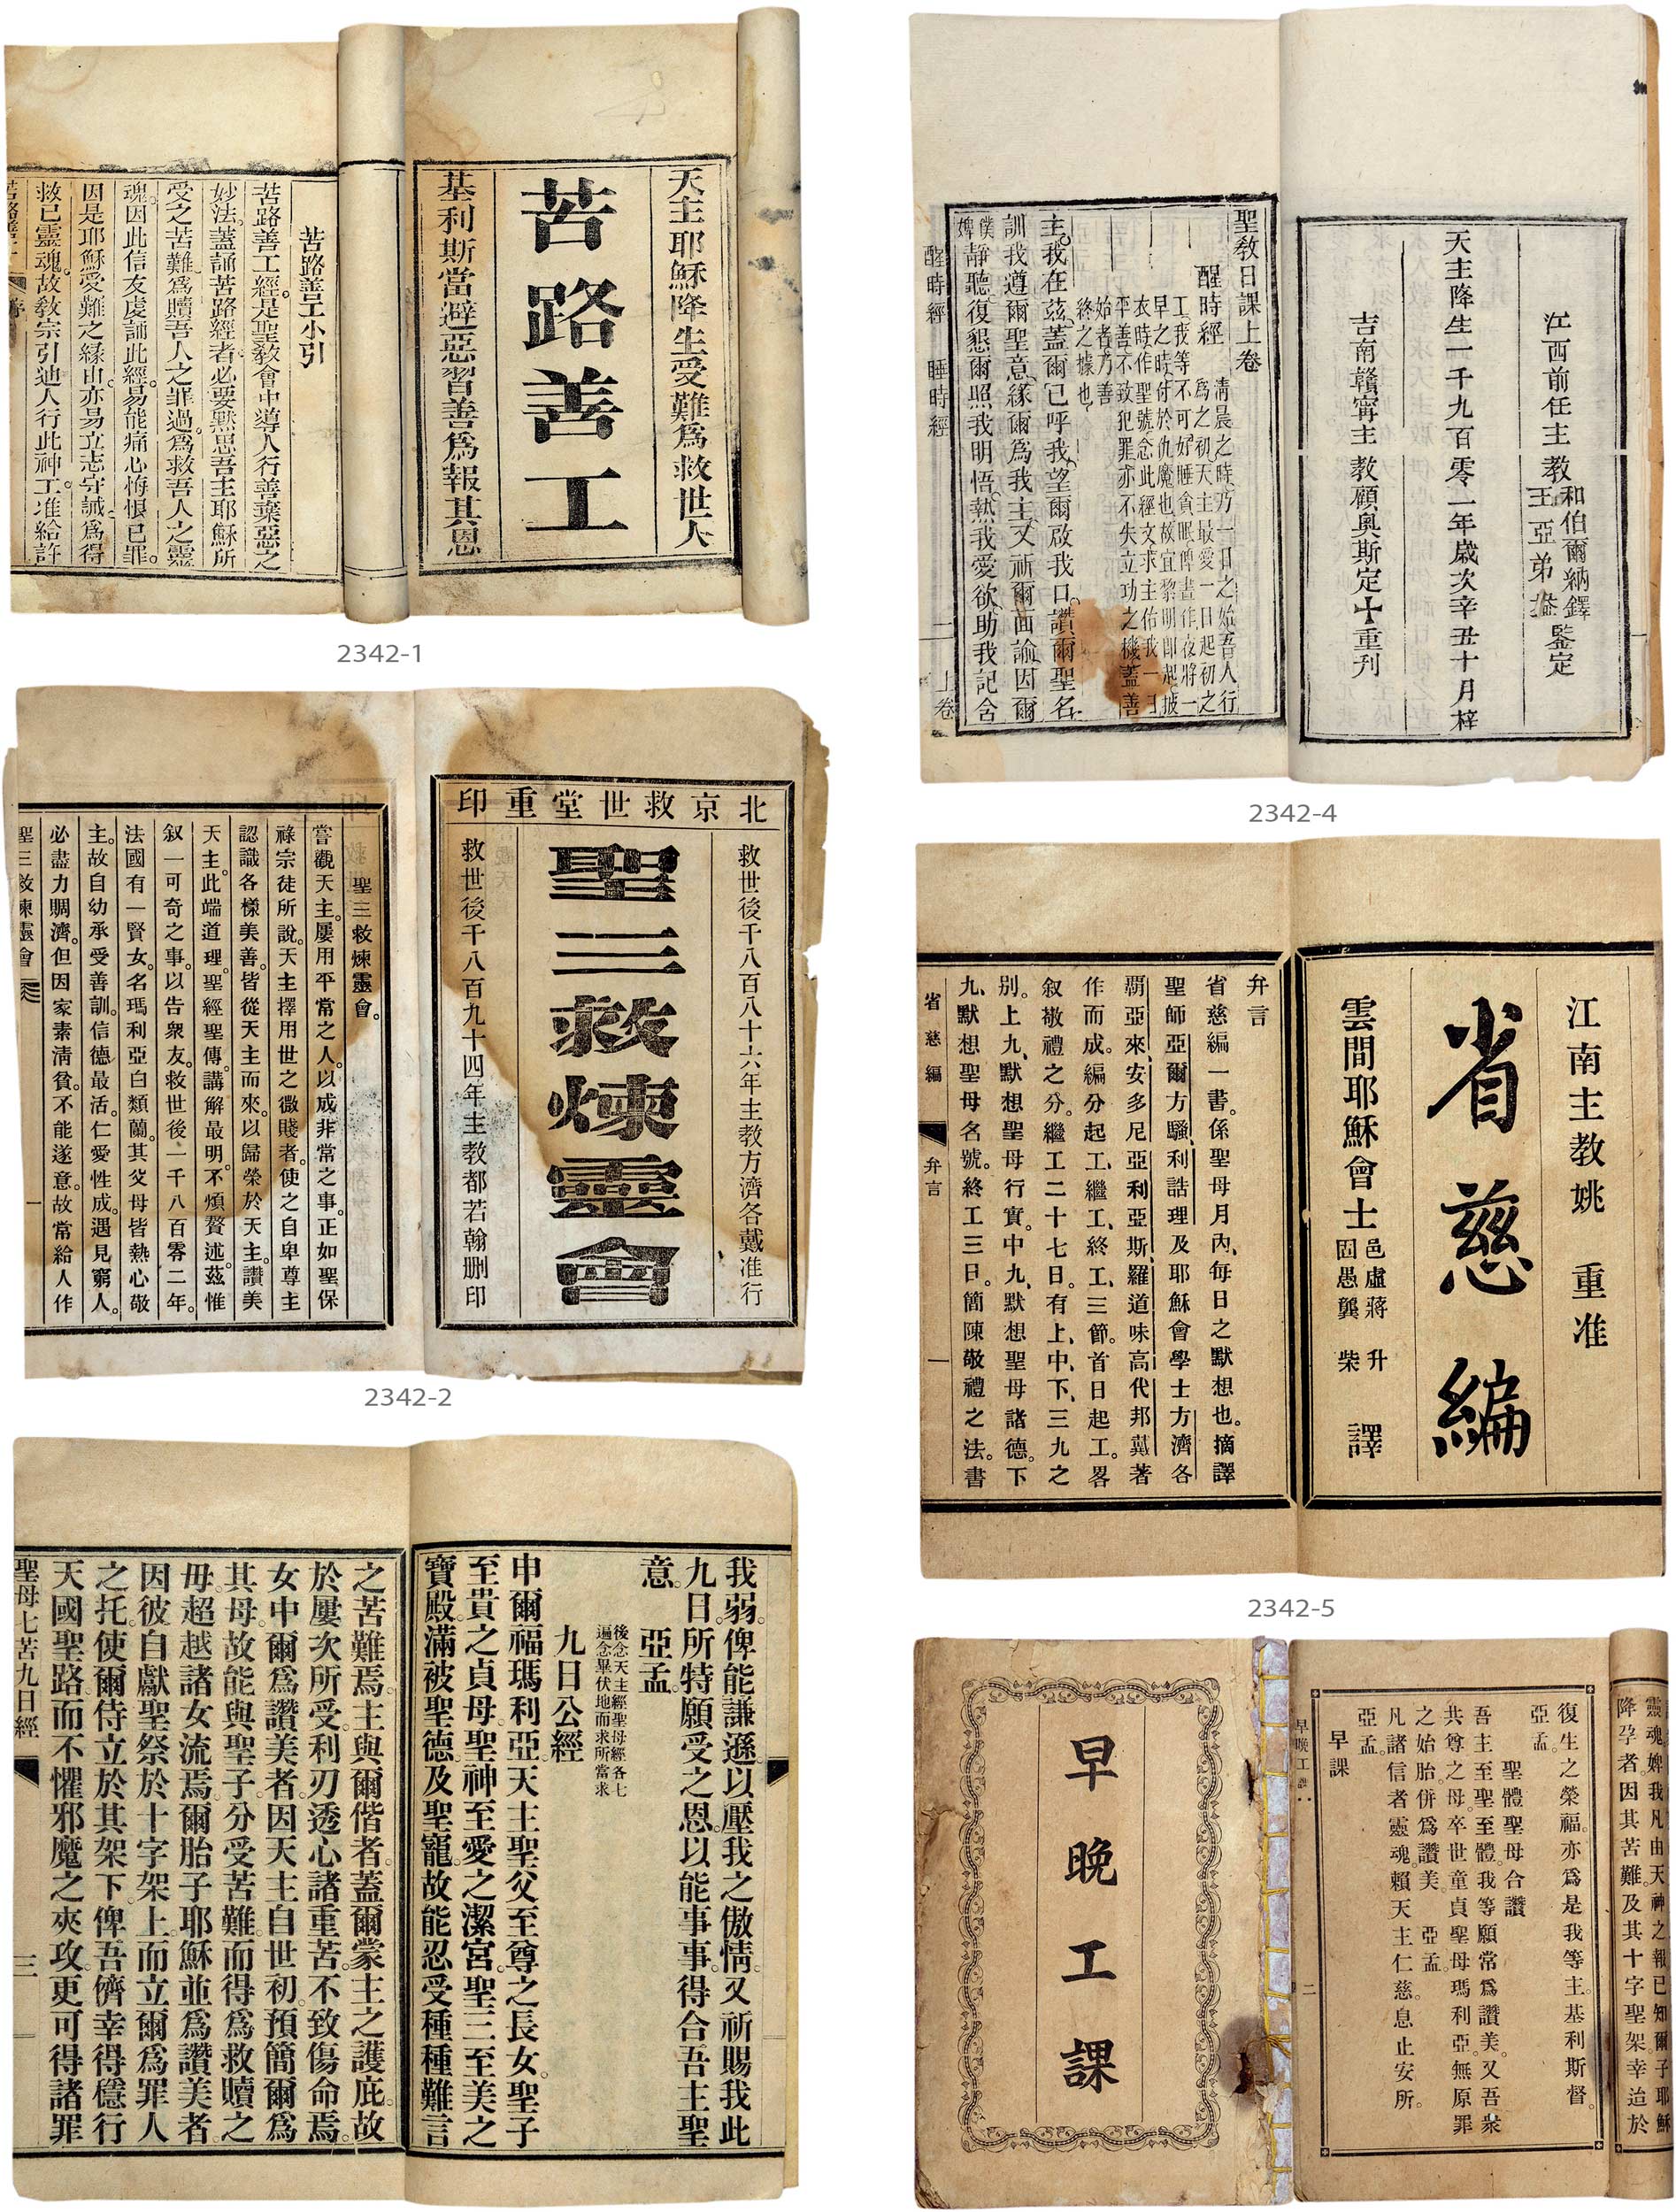 天主耶穌降生受難爲救世人
苦路善工
基利斯當避惡習善爲報其恩
苦路善工小引
苦路善工經是聖教會中導人行善棄惡之
妙法。蓋誦苦路經者。必要默思吾主耶穌所
受之苦難。爲贖吾人之罪過。爲救吾人之靈
魂。因此信友虔誦此經。易能痛心悔恨已罪。
因是耶穌受難之緣由。亦易立志守誡。爲得
救已靈魂。故教宗引迪人行此神工。准給許
2342-1
北京救世堂重印
救世後千八百八十六年主教方濟各戴准行
聖三救煉靈會
救世後千八百九十四年主教都若翰删印
聖三救煉靈會。
嘗觀天主。屢用平常之人。以成非常之事。正如聖保
祿宗徒所說。天主擇用世之微賤者。使之自卑尊主
認識各樣美善。皆從天主而來。以歸榮於天主。讚美
天主。此端道理。聖經聖傳。講解最明。不煩贅述。茲惟
叙一可奇之事。以告衆友。救世後一千八百零二年。
法國有一賢女。名瑪利亞白類蘭。其父母皆熱心敬
主。故自幼承受善訓。信德最活。仁愛性成。遇見窮人。
必盡力賙濟。但因家素清貧。不能遂意。故常給人作
聖三救煉靈會
一
2342-2
我弱。俾能謙遜。以壓我之傲情。又祈賜我此
九日。所特願受之恩。以能事事。得合吾主聖
意。 亞孟。
後念天主經聖母經各七
遍念畢伏地而求所當求
九日公經
申爾福瑪利亞。天主聖父至尊之長女。聖子
至貴之貞母。聖神至愛之潔宮。聖三至美之
寶殿。滿被聖德。及聖寵。故能忍受種種難言
之苦難焉。主與爾偕者。蓋爾蒙主之護庇。故
於屢次所受。利刃透心諸重苦。不致傷命焉。
女中爾爲讚美者。因天主自世初。預簡爾爲
其母。故能與聖子。分受苦難。而得爲救贖之
母。超越諸女流焉。爾胎子耶穌並爲讚美者。
因彼自獻聖祭於十字架上。而立爾爲罪人
之托。使爾侍立於其架下。俾吾儕幸得穩行
天國聖路。而不懼邪魔之夾攻。更可得諸罪
聖母七苦九日經
三
江西前任主教和伯爾納鐸
王亞弟 鑒定
天主降生一千九百零一年歲次辛丑十月梓
吉南贛甯主教顧奧斯定十重刊
聖教日課上卷
醒時經
清晨之時。乃一日之始。吾人行
爲之初。天主最愛一日起初之
工。我等不可好睡貪眠。俾晝作夜。將一
早之時。付於仇魔也。故宜黎明即起。披
衣時作聖號。念此經文。求主佑我一日
平善。不致犯罪。亦不失立功之機。蓋善
始者。乃善
終之據也。
主。我在茲。蓋爾已呼我。望爾啟我口。讚爾聖名。
訓我遵爾聖意。緣爾爲我主。又祈爾面諭。因爾
僕婢靜聽。復懇爾照我明悟。熱我愛欲。助我記含
醒時經 睡時經
一
上卷
2342-4
江南主教姚 重准
省慈編
雲間耶穌會士邑虛蔣 升
固愚龔 柴 譯
弁言
省慈編一書。係聖母月內。每日之默想也。摘譯
聖師亞爾方騷、利誥理及耶穌會學士方濟各
覇亞來、安多尼亞利亞斯、羅道味高代邦冀著
作而成。編分起工、繼工、終工、三節。首日起工。畧
叙敬禮之分。繼工二十七日。有上、中、下、三九之
別。上九、默想聖母行實。中九、默想聖母諸德。下
九、默想聖母名號。終工三日。簡陳敬禮之法。書
省慈編
弁言
一
2342-5
早晚工課
靈魂。婢我凡由天神之報。已知爾子耶穌
降孕者。因其苦難。及其十字聖架。幸迨於
復生之榮福。亦爲是我等主。基利斯督。
亞孟。
聖體聖母合讚
吾主至聖至體。我等願常爲讚美。又吾衆
共尊之母。卒世童貞聖母瑪利亞。無原罪
之始胎。併爲讚美。 亞孟。
凡諸信者靈魂。賴天主仁慈。息止安所。
亞孟。
早課
早晚工課
二